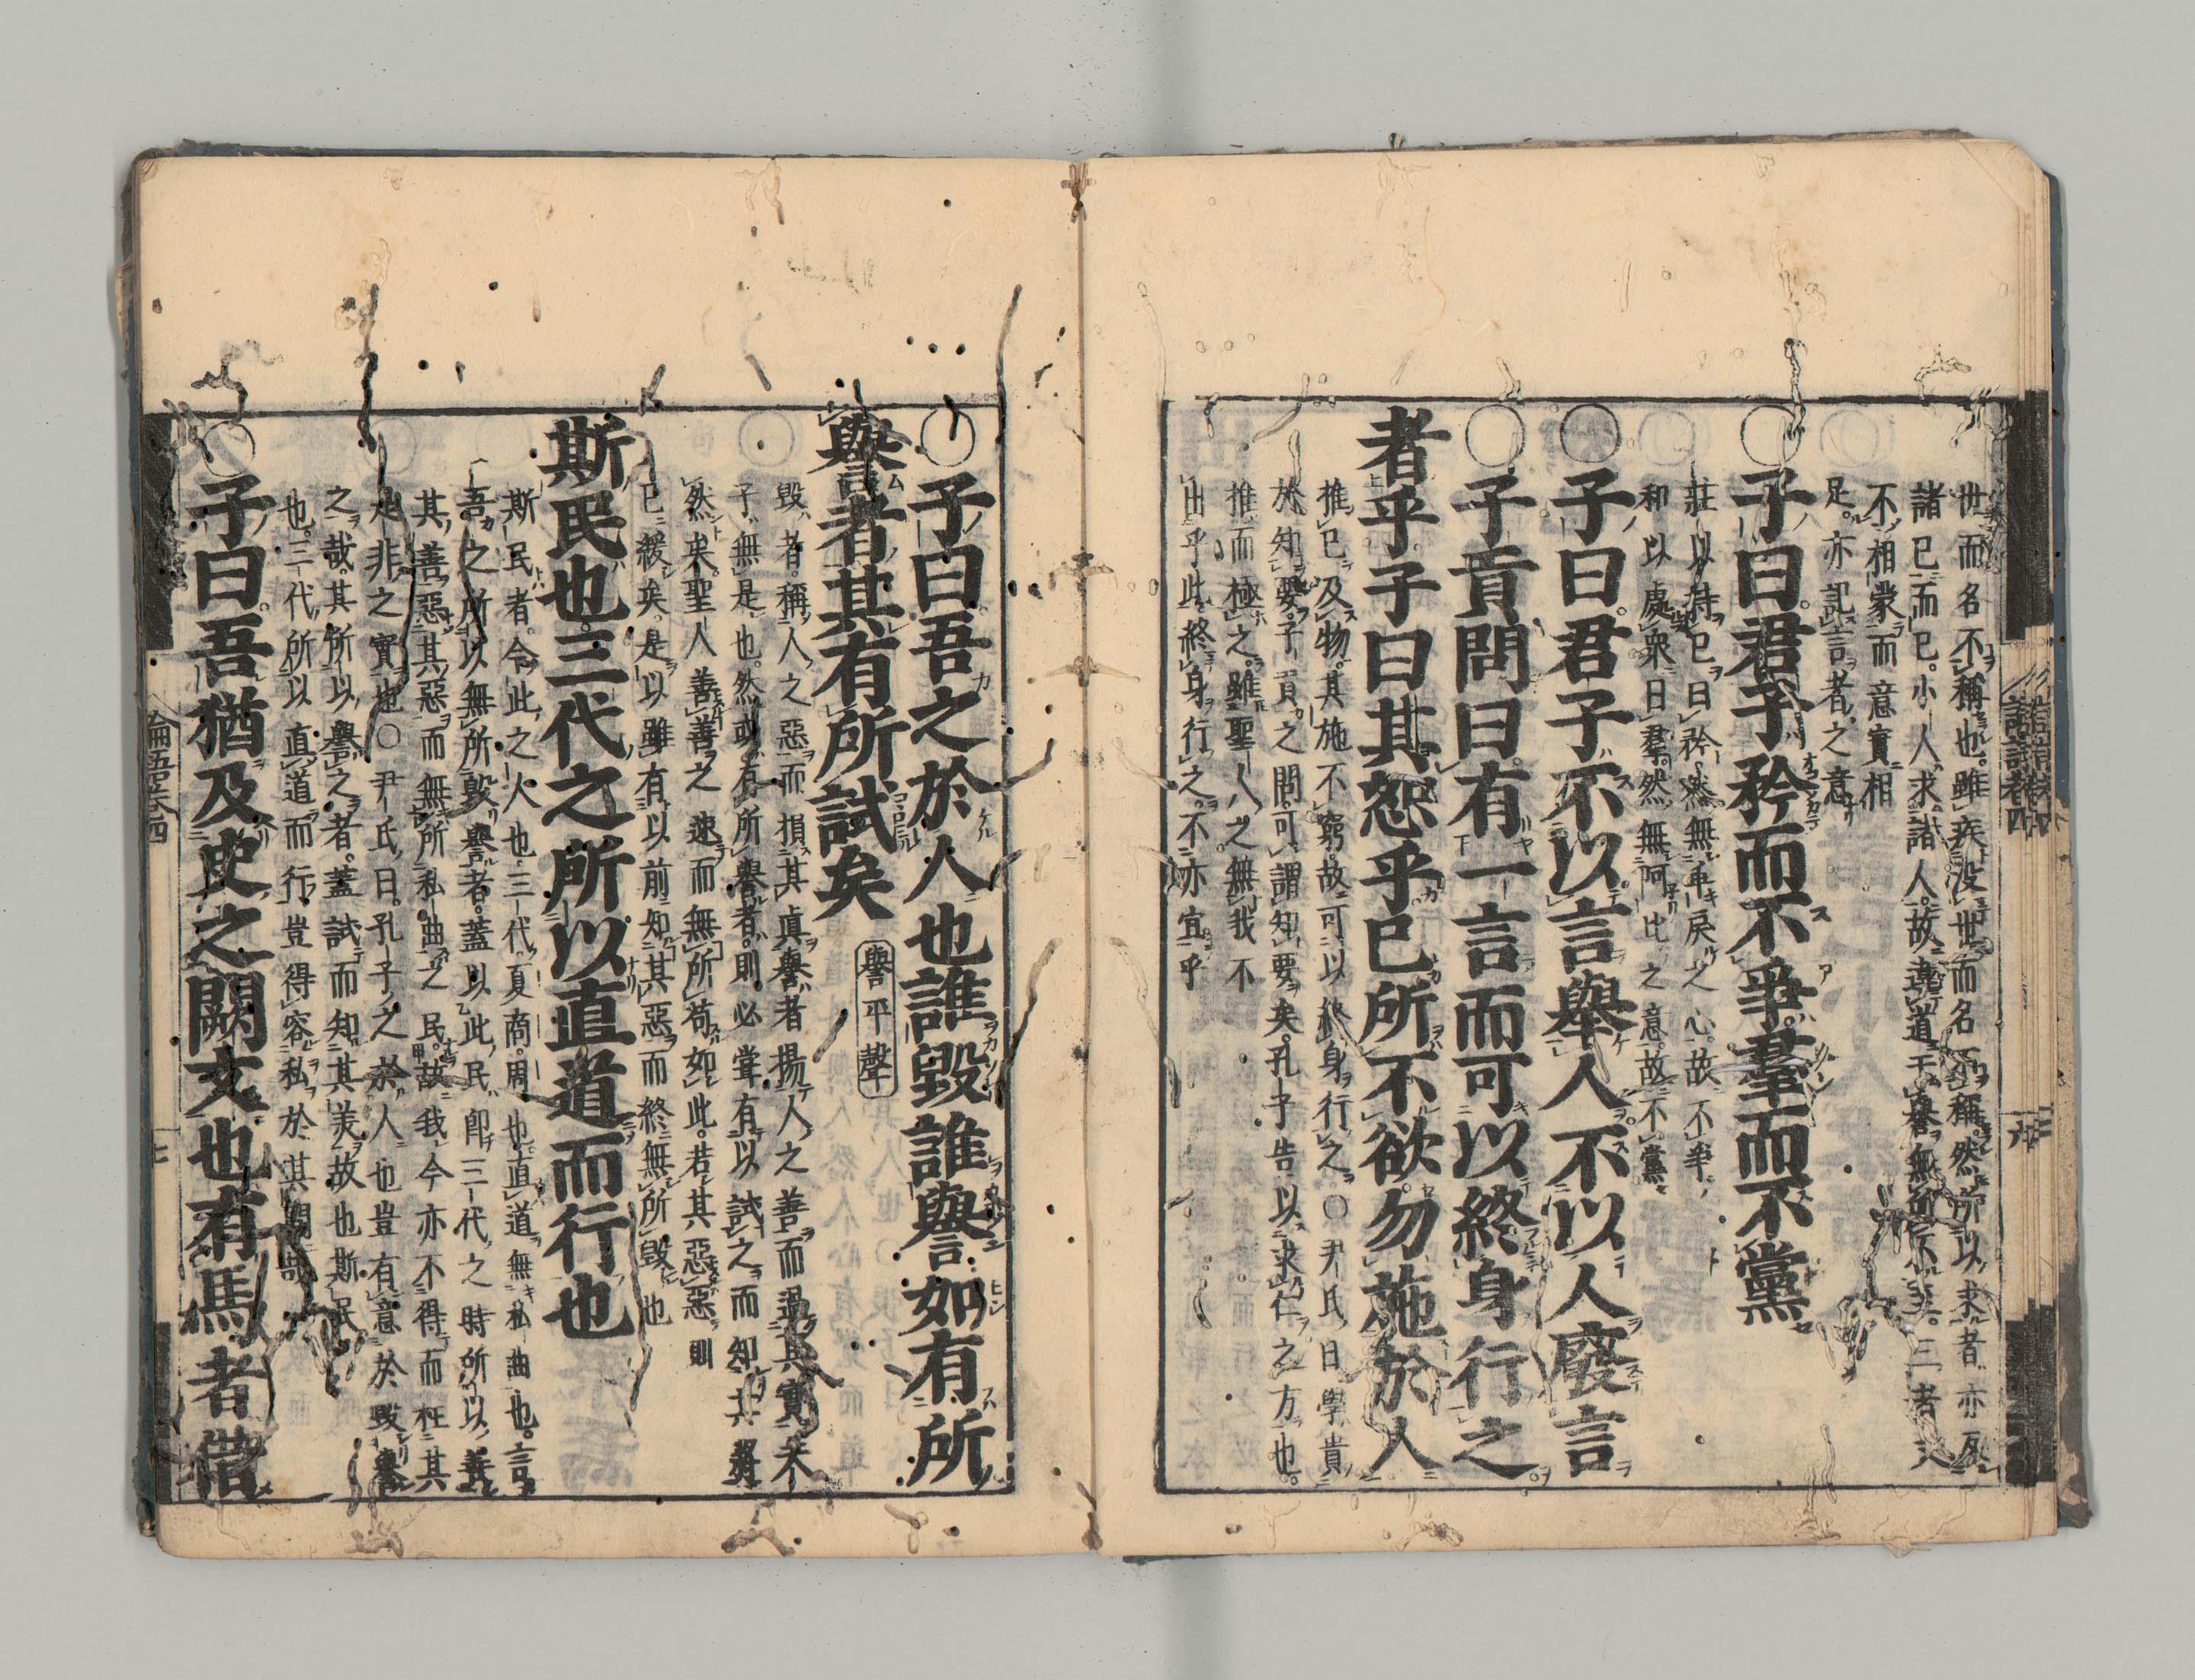 世而名不稱也。雖疾沒世而名不稱。然所以求者亦反
諸己而已。小人求諸人。故違道干譽無所不至。三者文
不相蒙而意實相
足。亦記言者之意
○子曰君子矜而不爭羣而不黨
莊以持己曰矜。然無乖戾之心。故不爭。
和以處衆曰羣。然無阿比之意。故不黨
○子曰君子不以言舉人不以人廢言
○子貢問曰有一言而可以終身行之
者乎子曰其恕乎己所不欲勿施於人
推己及物。其施不窮。故可以終身行之。○尹氏曰學貴
於知要。子貢之問。可謂知要矣。孔子告以求仁之方也。
推而極之。雖聖人之無我不
出乎此。終身行之。不亦宜乎
論語卷四
○子曰吾之於人也誰毀誰譽如有所
譽者其有所試矣 譽平聲
毀者。稱人之惡而損其眞。譽者揚人之善而過其實。夫
子無是也。然或有所譽者。則必嘗有以試之而知其將
然矣。聖人善善之速。而無所苟如此。若其惡惡則
已緩矣。是以雖有以前知其惡。而終無所毀也
斯民也三代之所以直道而行也
斯民者。今此之人也。三代夏商周也。直道無私曲也。言
吾之所以無所毀譽者。蓋以此民。卽三代之時所以善
其善。惡其惡而無所私曲之民。故我今亦不得而枉其
是非之實也○尹氏曰。孔子之於人也豈有意於毀譽
之哉。其所以譽之者。蓋試而知其美故也斯民
也。三代所以直道而行。豈得容私於其間哉
○子曰吾猶及史之闕文也有馬者借
論語卷四